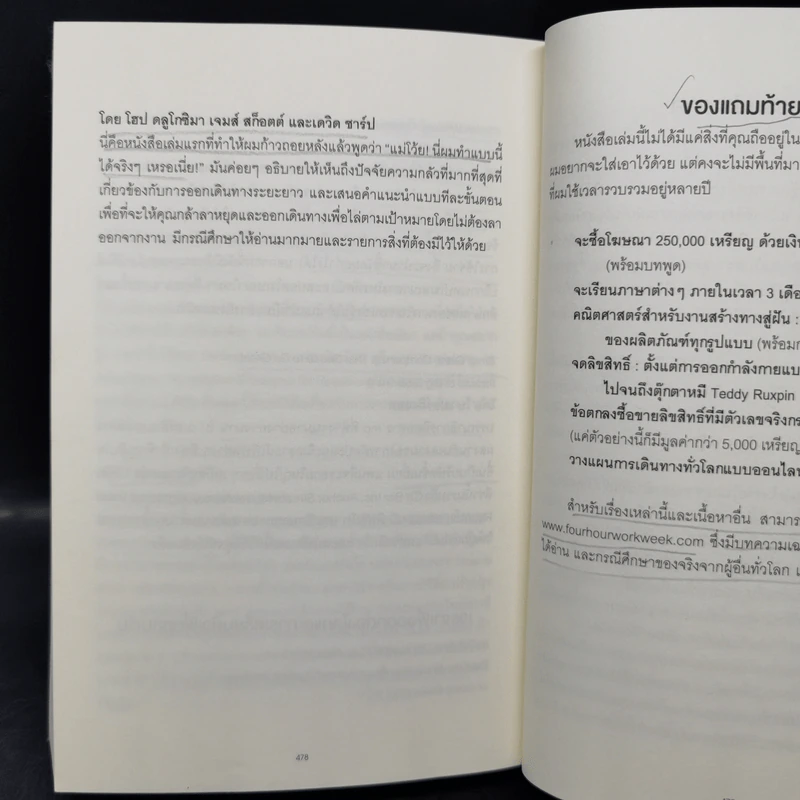 โดย โฮป ดลูโกซิมา เจมส์ สก็อตต์ และเดวิด ซาร์ป
นี่คือหนังสือเล่มแรกที่ทำให้ผมก้าวถอยหลังแล้วพูดว่า “แม่โว้ย! นี่ผมทำแบบนี้
ได้จริงๆ เหรอเนี่ย!” มันค่อยๆ อธิบายให้เห็นถึงปัจจัยความกลัวที่มากที่สุดที่
เกี่ยวข้องกับการออกเดินทางระยะยาว และเสนอคำแนะนำแบบทีละขั้นตอน
เพื่อที่จะให้คุณกล้าลาหยุดและออกเดินทางเพื่อไล่ตามเป้าหมายโดยไม่ต้องลา
ออกจากงาน มีกรณีศึกษาให้อ่านมากมายและรายการสิ่งที่ต้องมีไว้ให้ด้วย
478
ของแถมท้าย
หนังสือเล่มนี้ไม่ได้มีแค่สิ่งที่คุณถืออยู่ใน
ผมอยากจะใส่เอาไว้ด้วย แต่คงจะไม่มีพื้นที่มา
ที่ผมใช้เวลารวบรวมอยู่หลายปี
จะซื้อโฆษณา 250,000 เหรียญ ด้วยเงิน
(พร้อมบทพูด)
จะเรียนภาษาต่างๆ ภายในเวลา 3 เดือ
คณิตศาสตร์สำหรับงานสร้างทางสู่ฝัน :
ของผลิตภัณฑ์ทุกรูปแบบ (พร้อมก
จดลิขสิทธิ์ : ตั้งแต่การออกกำลังกายแบ
ไปจนถึงตุ๊กตาหมี Teddy Ruxpin
ข้อตกลงซื้อขายลิขสิทธิ์ที่มีตัวเลขจริงกร
(แค่ตัวอย่างนี้ก็มีมูลค่ากว่า 5,000 เหรียญ
วางแผนการเดินทางทั่วโลกแบบออนไลน
สำหรับเรื่องเหล่านี้และเนื้อหาอื่น สามาร
www.fourhourworkweek.com ซึ่งมีบทความเฉ
ได้อ่าน และกรณีศึกษาของจริงจากผู้อื่นทั่วโลก